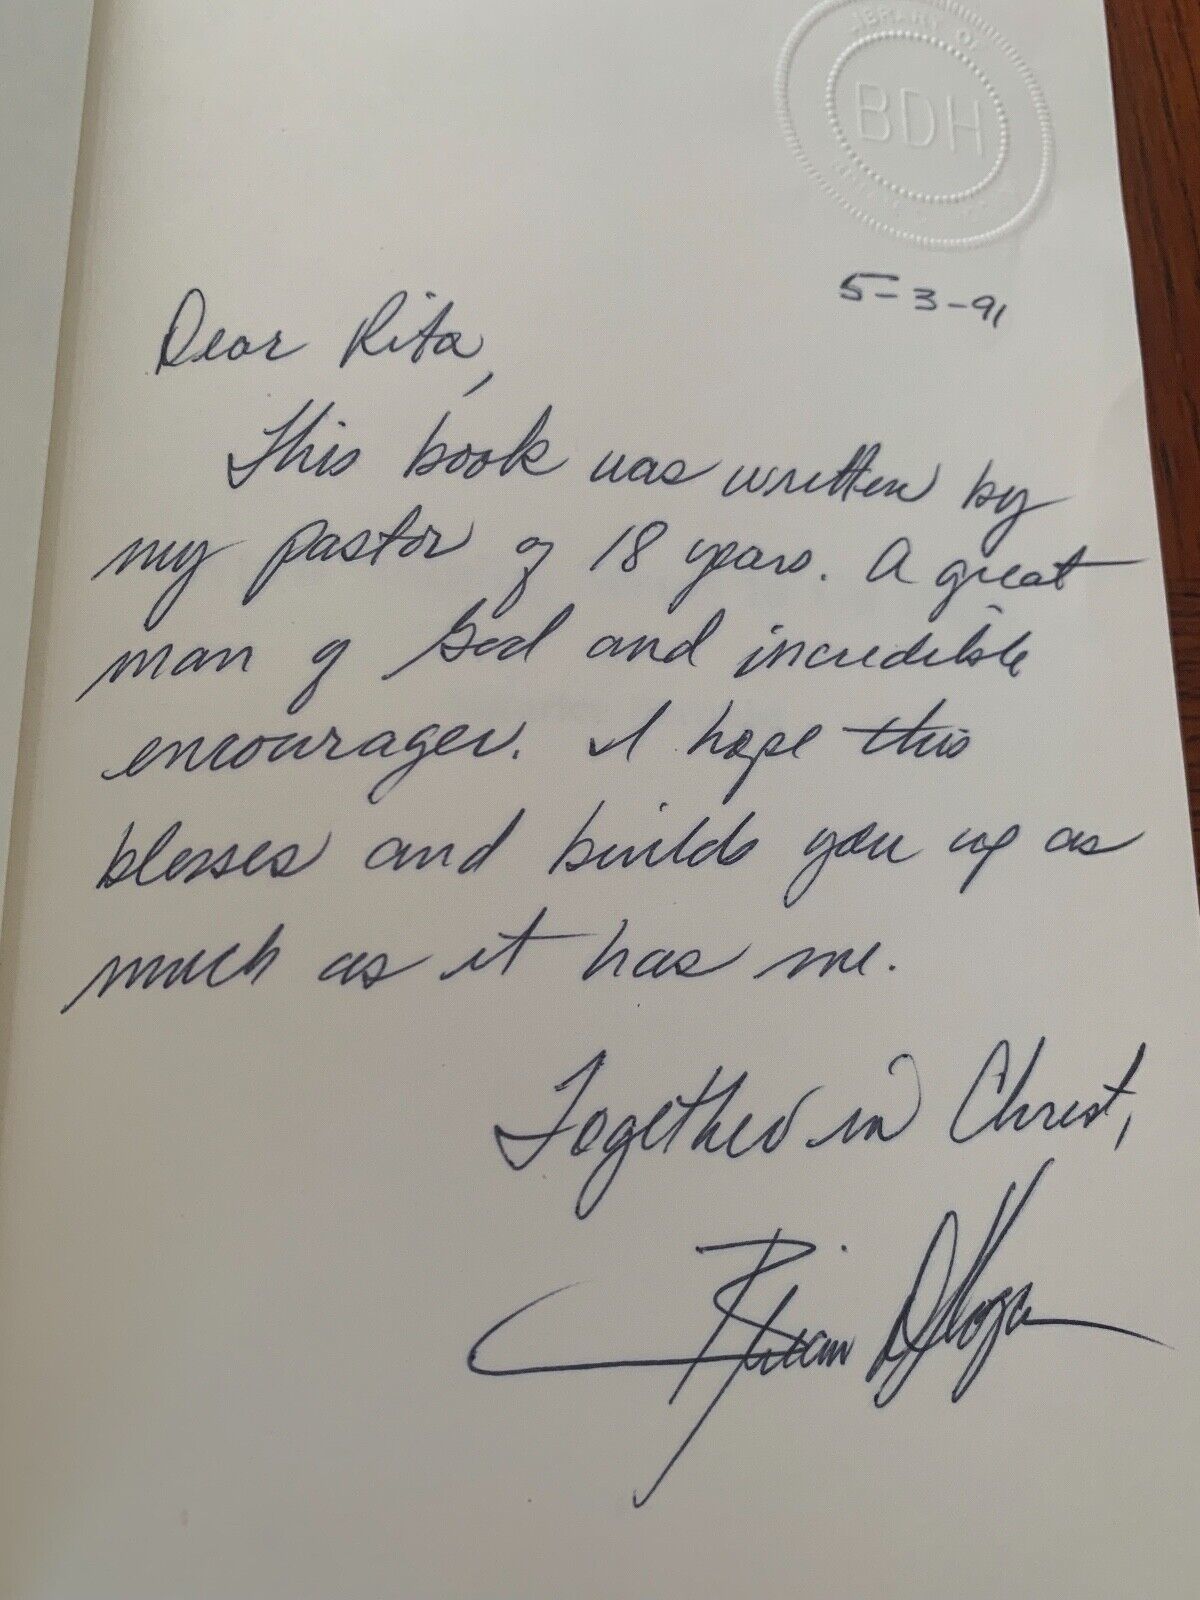 LIBRARY OF
BDH
5-3-91
Dear Rita,
This book was written by
my pastor of 18 years. A great
man of God and incredible
encourager. I hope this
blesses and builds you up as
much as it has me.
Together in Christ,
Brian D Hogan